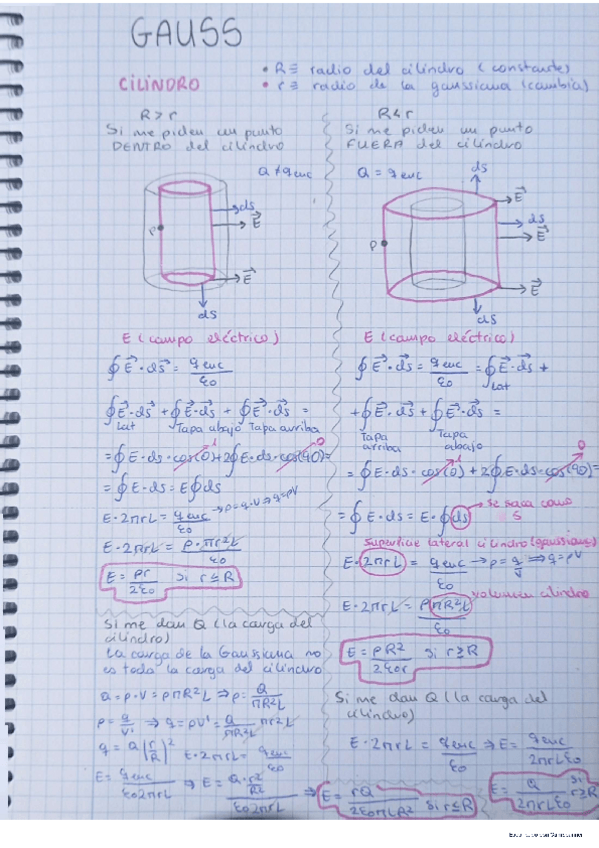 GAUSS
CILINDRO
• R ≡ radio del cilindro (constante)
• r ≡ radio de la gaussiana (cambia)
R > r
Si me piden un punto
DENTRO del cilindro
Q ≠ q enc
P
dS
E⃗
E⃗
dS
E (campo eléctrico)
∮ E⃗ · dS⃗ = q enc / ε0
∮ E⃗·dS⃗ + ∮ E⃗·dS⃗ + ∮ E⃗·dS⃗ =
Lat Tapa abajo Tapa arriba
= ∮ E·dS·cos(0) 1 + 2∮ E·dS·cos(90) =
= ∮ E·dS = E∮dS
E·2πrL = q enc / ε0 → ρ = q·V ⇒ q = ρV
E·2πrL = ρ·πr²L / ε0
E = ρr / 2ε0 si r ≤ R
Si me dan Q (la carga del
cilindro)
La carga de la Gaussiana no
es toda la carga del cilindro
Q = ρ·V = ρπR²L ⇒ ρ = Q / πR²L
ρ = q / V' ⇒ q = ρV' = Q / πR²L πr²L
q = Q (r/R)² E·2πrL = q enc / ε0
E = q enc / ε0 2πrL ⇒ E = Q·r²/R² / ε0 2πrL ⇒ E = rQ / 2ε0πLR² si r ≤ R
R < r
Si me piden un punto
FUERA del cilindro
Q = q enc
dS
E⃗
dS
E⃗
P
E⃗
dS
E (campo eléctrico)
∮ E⃗ · dS⃗ = q enc / ε0 = ∮ E⃗·dS⃗ +
Lat
+ ∮ E⃗·dS⃗ + ∮ E⃗·dS⃗ =
Tapa arriba Tapa abajo
= ∮ E·dS·cos(0) 1 + 2∮ E·dS·cos(90) 0 =
= ∮ E·dS = E·∮dS → se saca como S
Superficie lateral cilindro (gaussiana)
E·2πrL = q enc / ε0 → ρ = q / V ⇒ q = ρV
volumen cilindro
E·2πrL = ρπR²L / ε0
E = ρR² / 2ε0r si r ≥ R
Si me dan Q (la carga del
cilindro)
E·2πrL = q enc / ε0 ⇒ E = q enc / 2πrLε0
E = Q / 2πrLε0 si r ≥ R